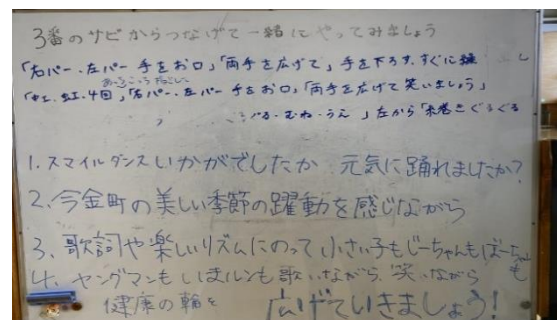 3番のサビからつなげて一緒にやってみましょう
「右パー、左パー 手をお口」「両手を広げて」手を下ろす、すぐに
「虹、虹、4回」「右パー、左パー 手をお口」「両手を広げて笑いましょう」
むね・うえ」左から「糸巻きぐるぐる
1. スマイルダンスいかがでしたか 元気に踊れましたか?
2. 今金町の美しい季節の躍動を感じながら
3. 歌詞や楽しいリズムにのって小さい子もじーちゃんもばーちゃんも
4. ヤングマンも いまルンも歌いながら、笑いながら
健康の輪を 広げていきましょう!